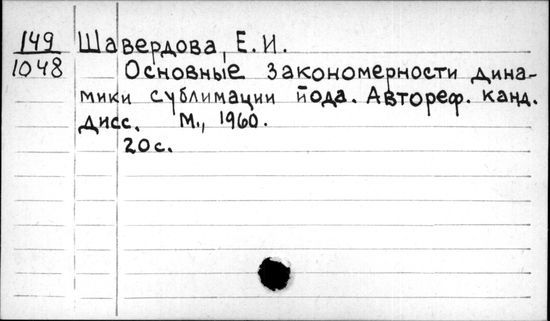 149 Шавердова, Е. И.
1048 Основные закономерности дина-
мики сублимации йода. Автореф. канд.
дисс. М., 1960.
20с.